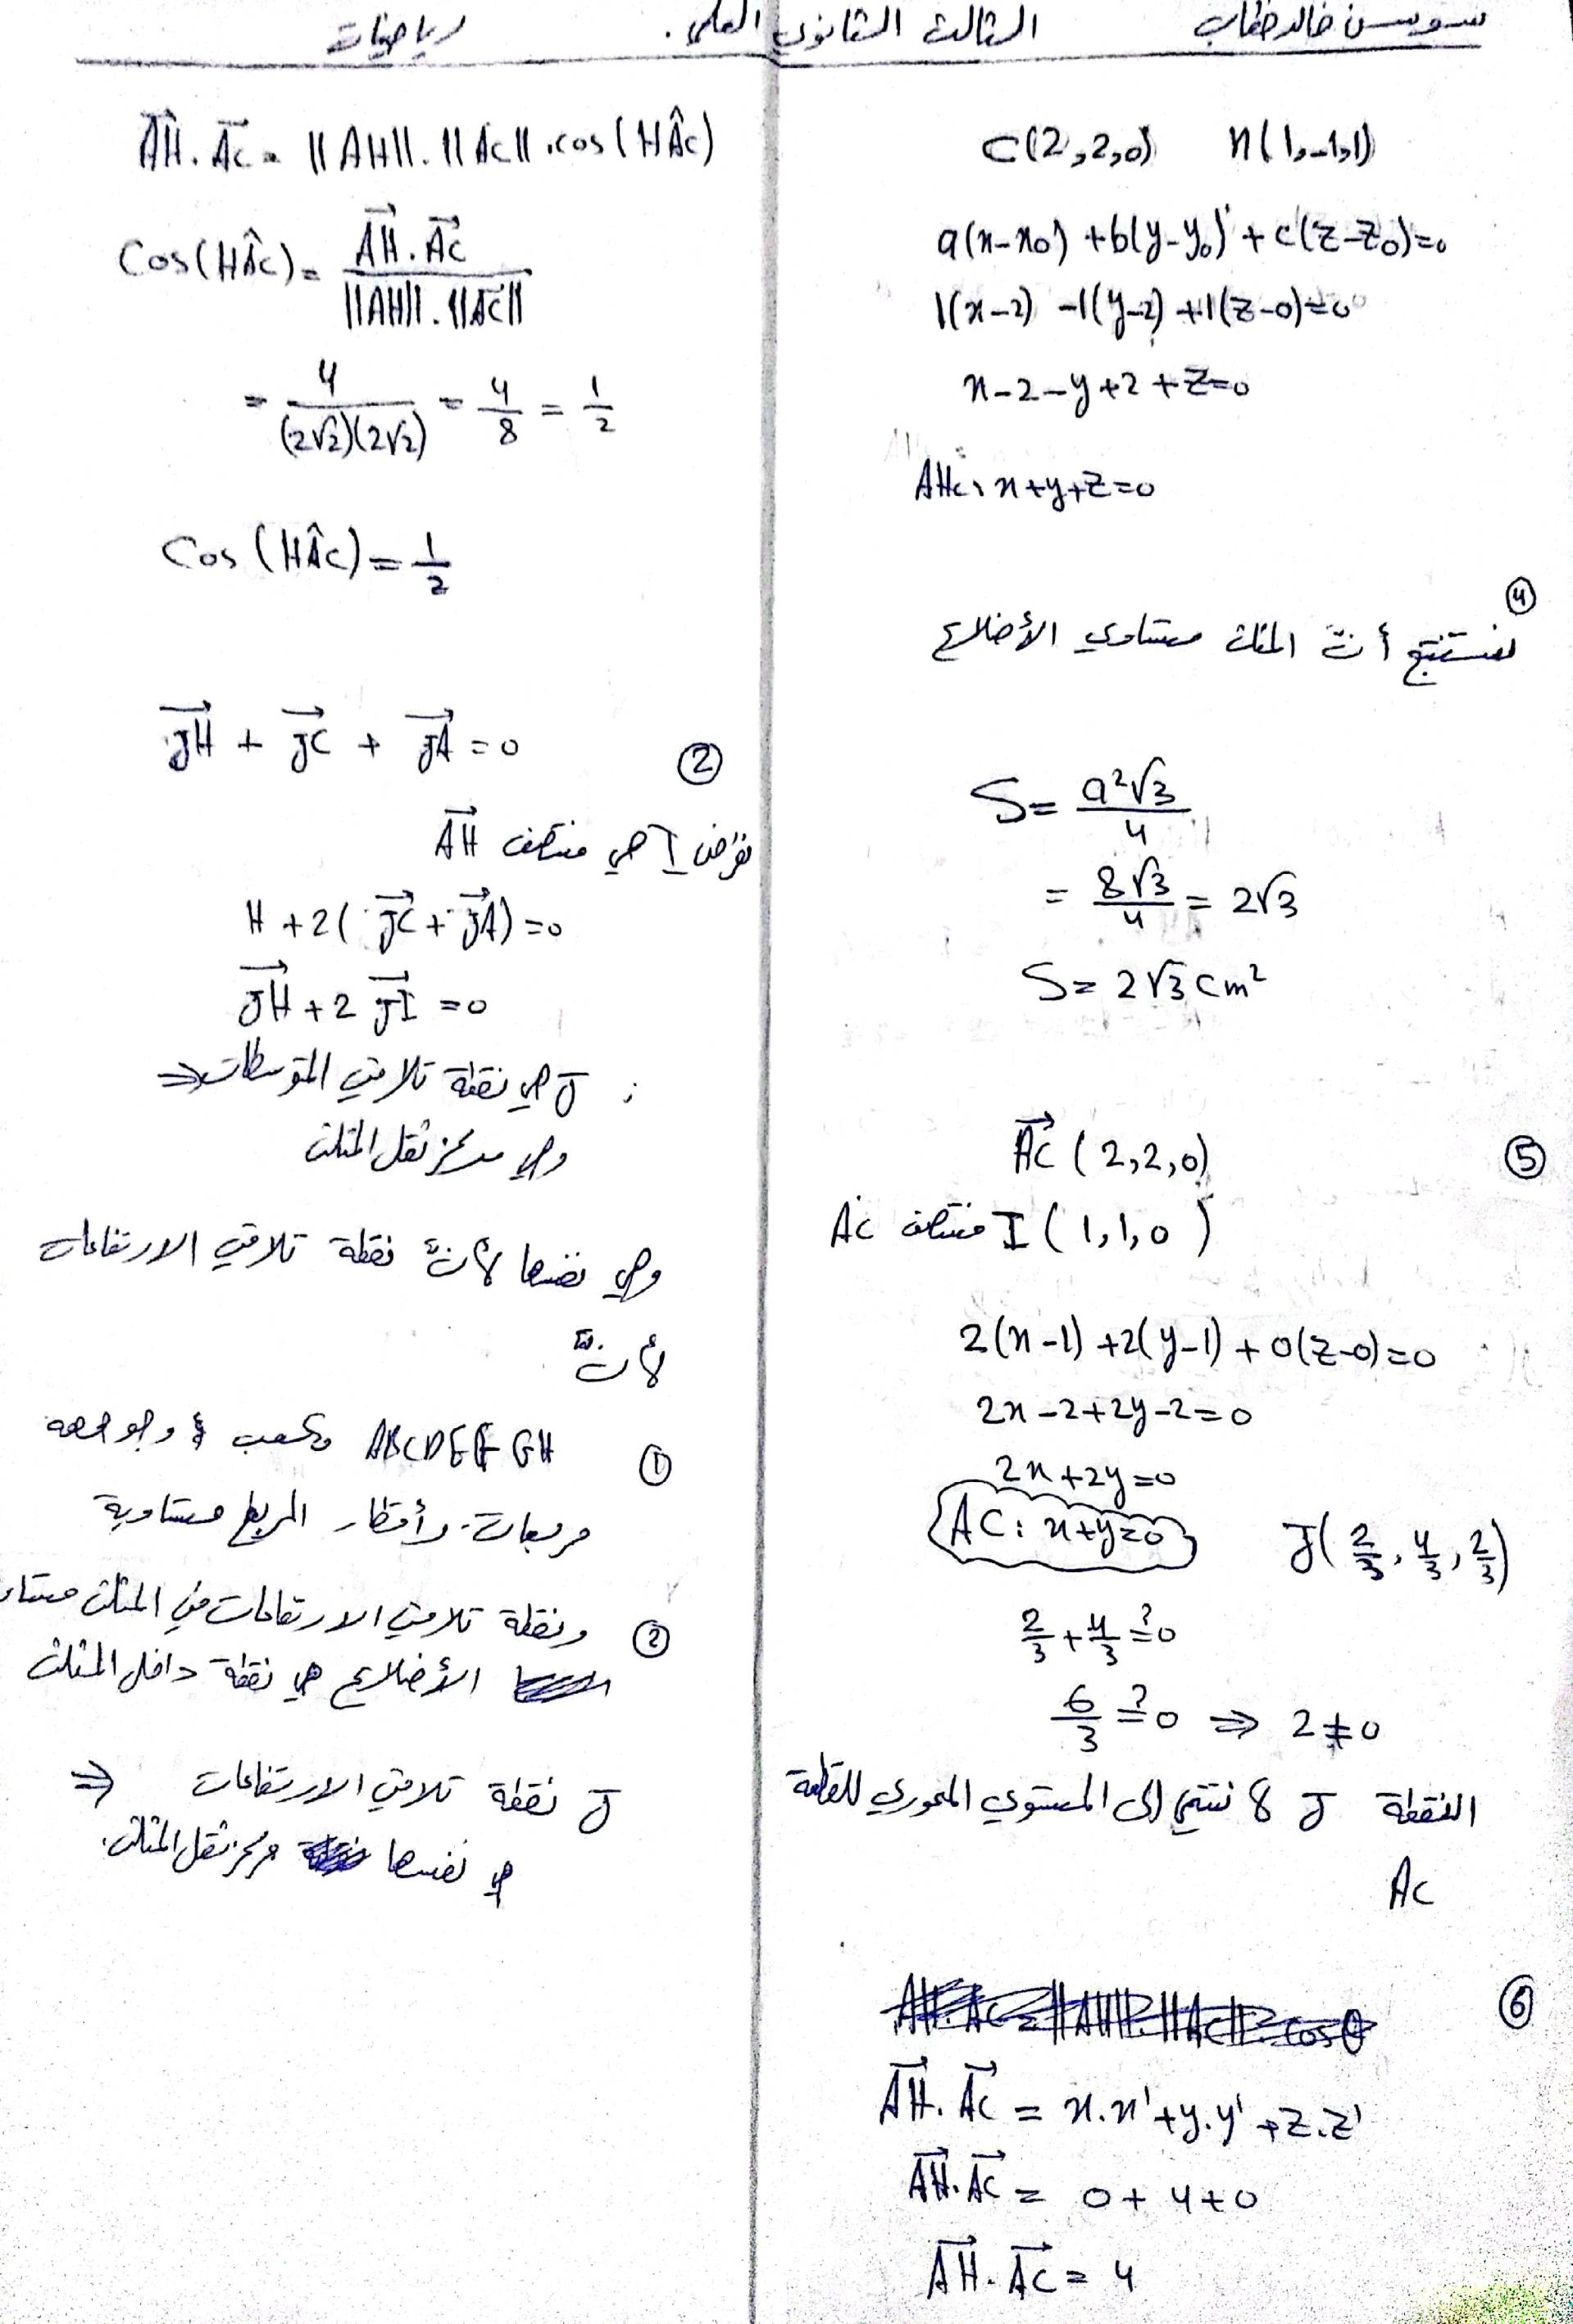 سوسن خالد خطاب
الثالث الثانوي العلمي.
رياضيات
C(2,2,0) n(1,-1,1)
a(x-x0) +b(y-y0) + c(z-z0)=0
1(x-2) -1(y-2) +1(z-0)=0
x-2-y+2+z=0
AHC: x+y+z=0
④
نستنتج أنّ المثلث متساوي الأضلاع
S = a²√3/4
= 8√3/4 = 2√3
S = 2√3 cm²
⑤ AC (2,2,0)
I (1,1,0) منتصف AC
2(x-1) +2(y-1) + 0(z-0)=0
2x-2+2y-2=0
2x+2y=0
AC: x+y=0 J(2/3, 4/3, 2/3)
2/3 + 4/3 ≟ 0
6/3 ≟ 0 ⇒ 2≠0
النقطة J لا تنتمي إلى المستوي المحوري للقطعة
AC
⑥
AH.AC = x.x'+y.y'+z.z'
AH.AC = 0+4+0
AH.AC = 4
AH.AC = ||AH||.||AC||.cos(HÂC)
Cos(HÂC) = AH.AC / ||AH||.||AC||
= 4/(2√2)(2√2) = 4/8 = 1/2
Cos (HÂC) = 1/2
② JH + JC + JA = 0
نفرض I هي منتصف AH
H +2(JC + JA)=0
JH + 2 JI = 0
J هي نقطة تلاقي المتوسطات ⇒
وهي مركز ثقل المثلث
وهي نفسها لأنّ نقطة تلاقي الارتفاعات
لأنّ
① ABCDEFGH مكعب و وجوهه
مربعات وأقطار المربع متساوية
② ونقطة تلاقي الارتفاعات في المثلث
الأضلاع هي نقطة داخل المثلث
J نقطة تلاقي الارتفاعات ⇒
هي نفسها مركز ثقل المثلث.